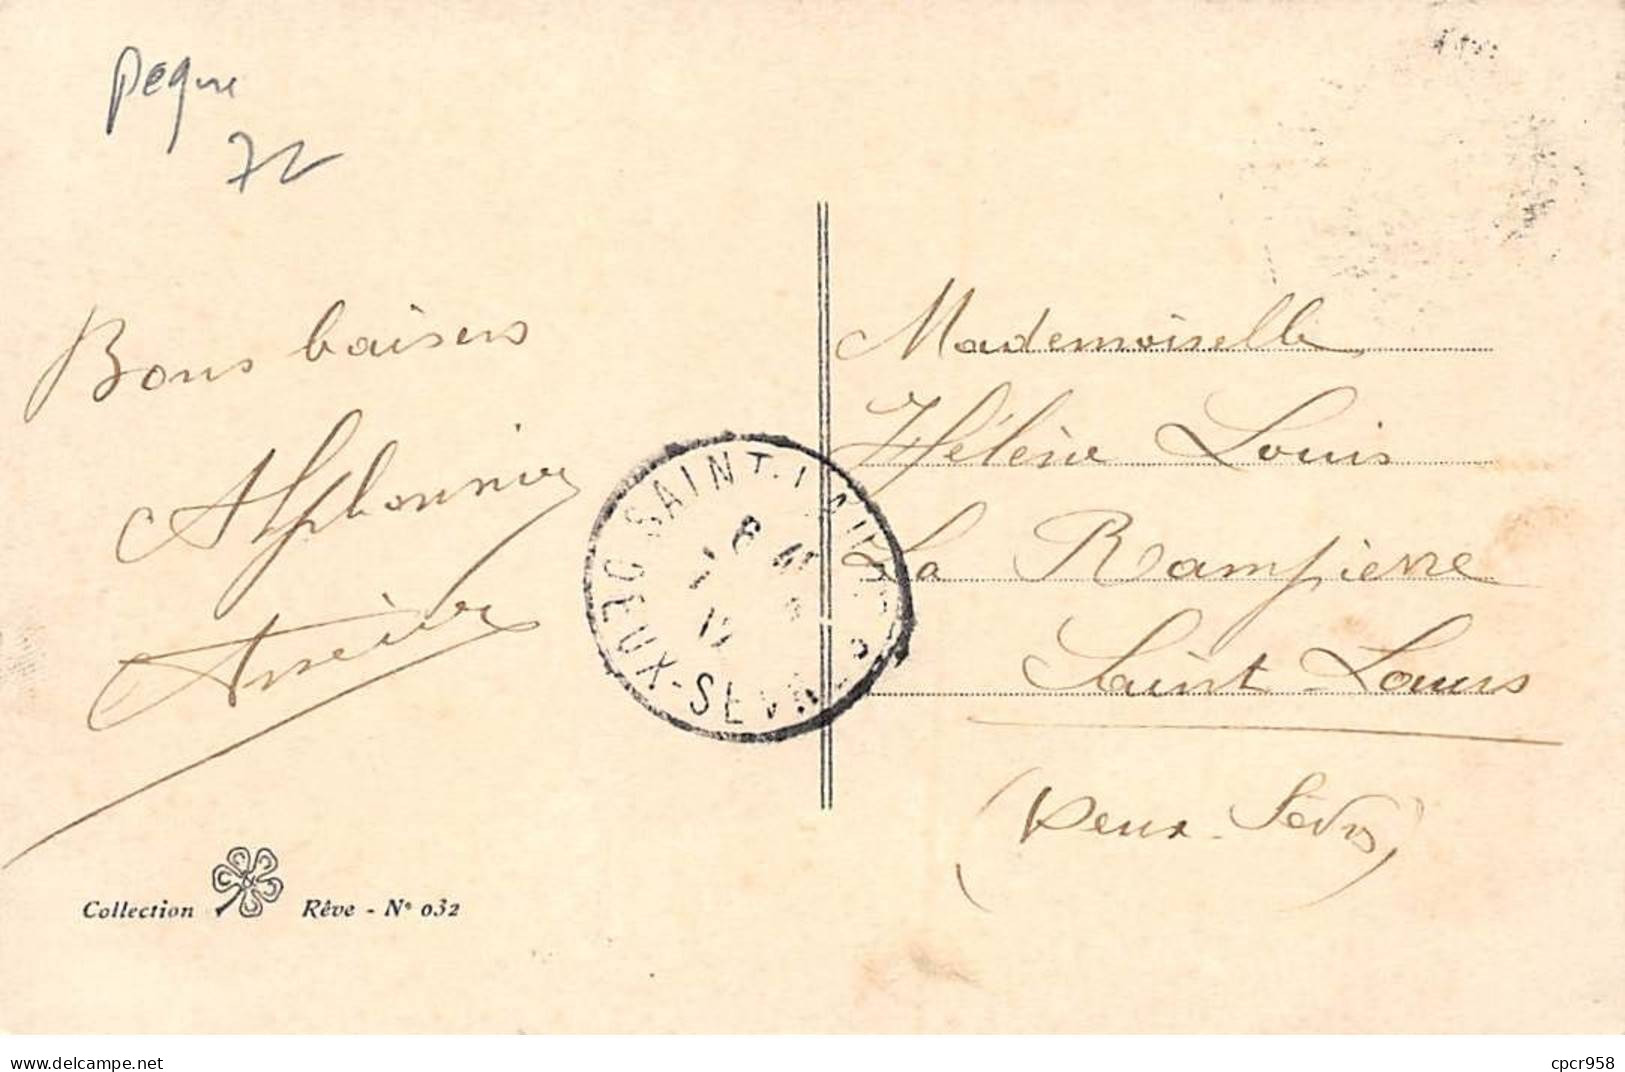 72
Bons baisers
Alphonsine
Mademoiselle
Hélène Louis
La Rampière
Saint-Laurs
(Deux-Sèvres)
SAINT-LAURS
DEUX-SEVRES
6
Collection Rêve - N° 032
www.delcampe.net
cpcr958